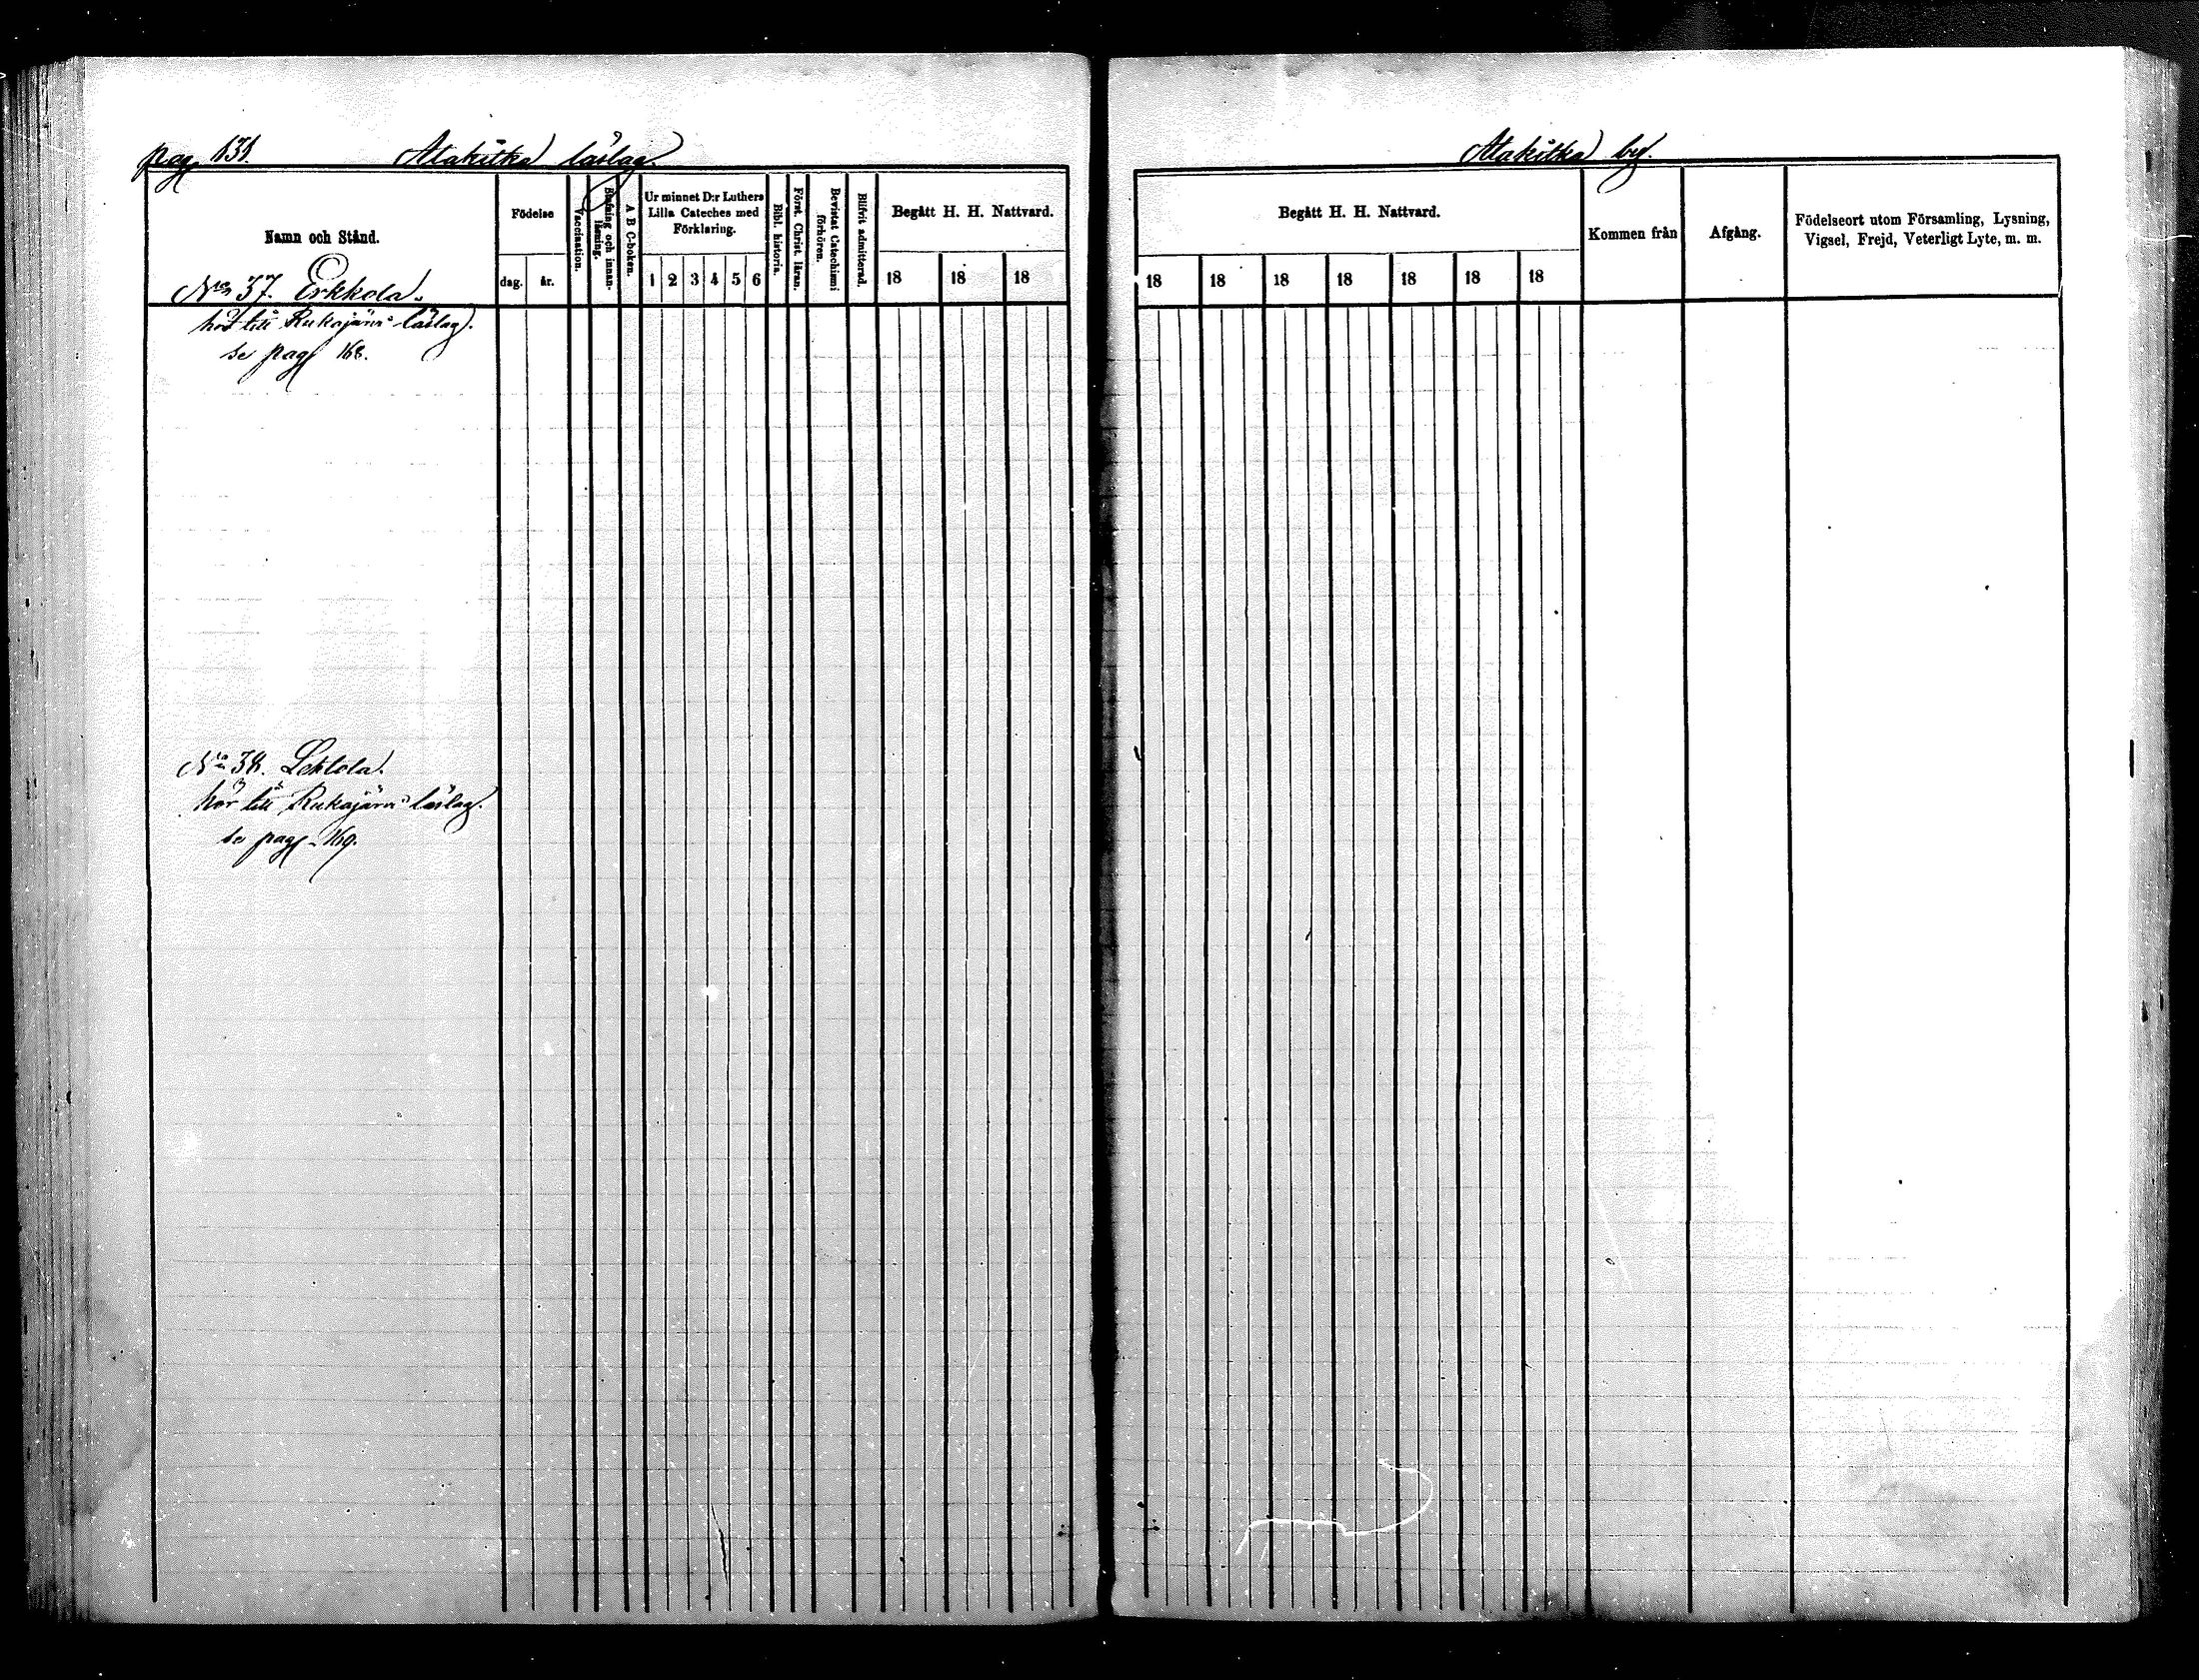 pag. 131. Alakitka läslag.
Namn och Stånd.
Födelse
dag. år.
Vaccination.
Stafning och innan-
läsning.
A B C-boken.
Ur minnet D:r Luthers
Lilla Cateches med
Förklaring.
1 2 3 4 5 6
Bibl. historia.
Förs. Christ. läran.
Bevistat Catechismi
förhören.
Blifvit admitterad.
Begått H. H. Nattvard.
18 18 18
No 37. Erkkola.
hör till Rukajärvi läslag.
se pag 168.
No 38. Lehtola.
hör till Rukajärvi läslag.
se pag 169.
Alakitka by.
Begått H. H. Nattvard.
18 18 18 18 18 18 18
Kommen från
Afgång.
Födelseort utom Församling, Lysning,
Vigsel, Frejd, Veterligt Lyte, m. m.